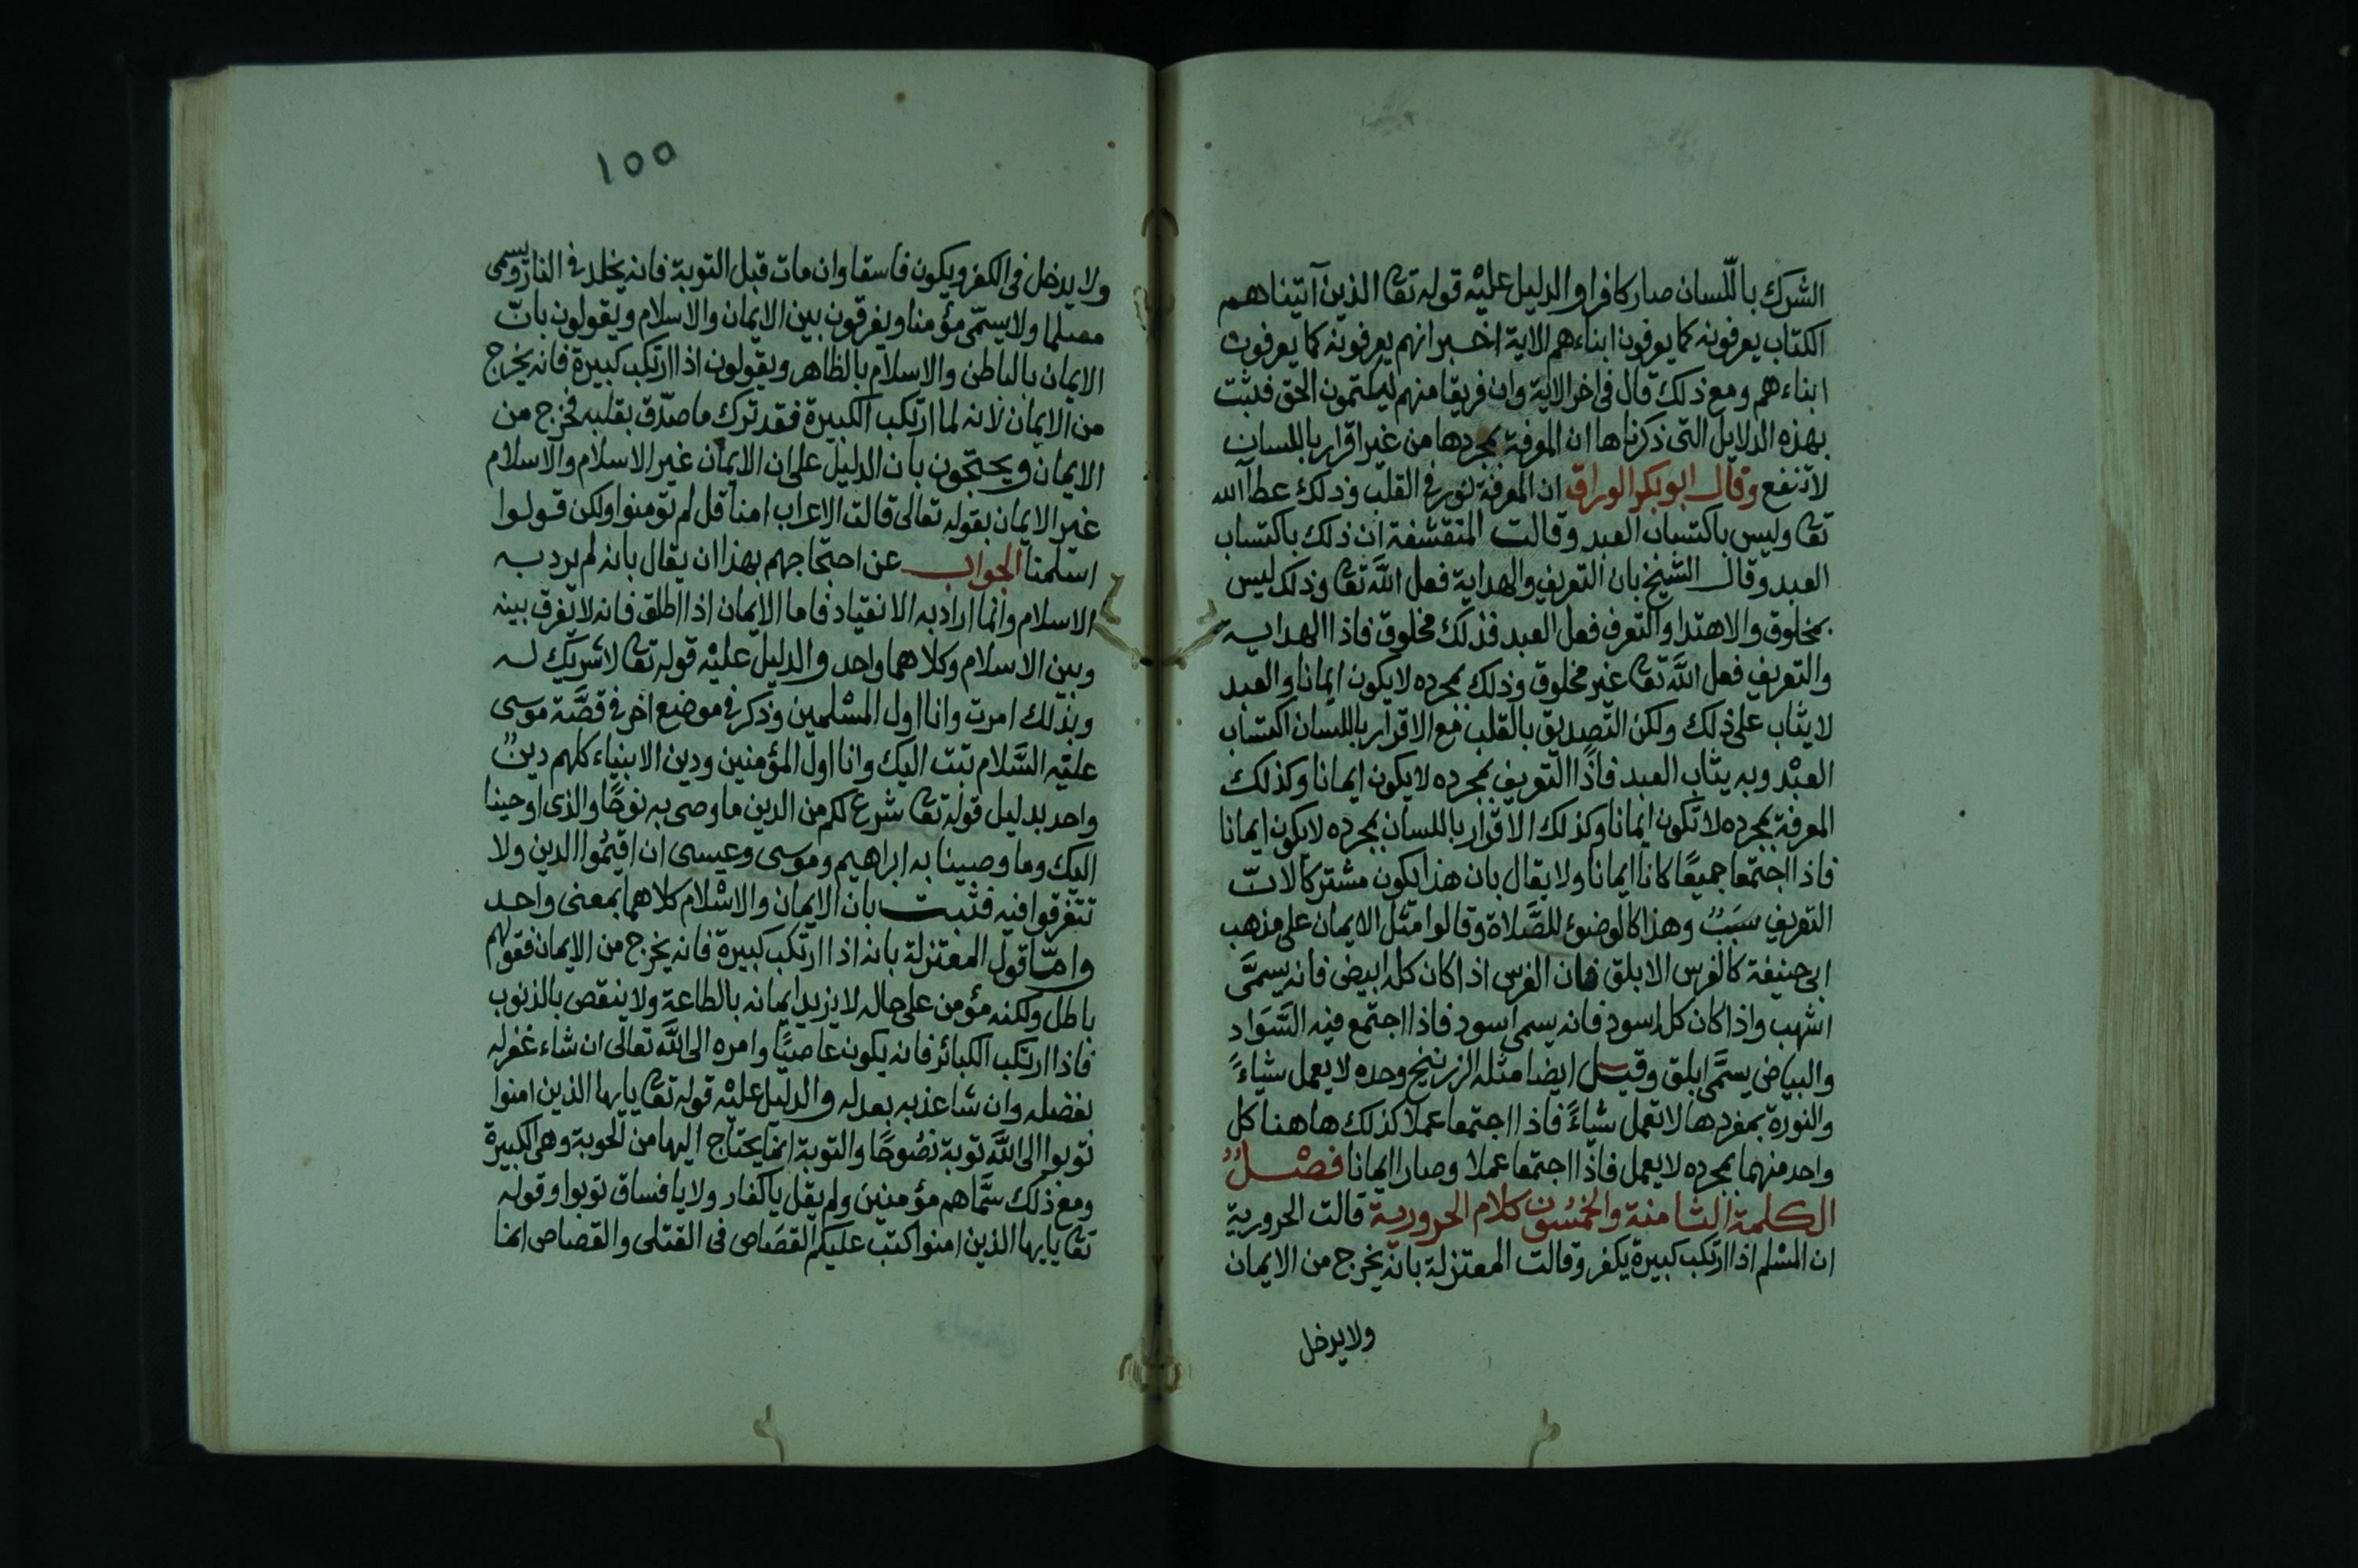 الشرك باللسان صار كافرا والدليل عليه قوله تعا الذين آتيناهم
الكتاب يعرفونه كما يعرفون ابناءهم الاية اخبر انهم يعرفونه كما يعرفون
ابناءهم ومع ذلك قال فى اخر الاية وان فريقا منهم ليكتمون الحق فثبت
بهذه الدلايل التى ذكرناها ان المعرفة بمجردها من غير اقرار باللسان
لا تنفع وقال ابو بكر الوراق ان المعرفة نور فى القلب وذلك عطاالله
تعا وليس باكتساب العبد وقالت المتقشفة ان ذلك باكتساب
العبد وقال الشيخ بان التعريف والهداية فعل الله تعا وذلك ليس
بمخلوق والاهتدا والتعرف فعل العبد فذلك مخلوق فاذا الهداية
والتعريف فعل الله تعا غير مخلوق وذلك بمجرده لا يكون ايمانا والعبد
لا يثاب على ذلك ولكن التصديق بالقلب مع الاقرار باللسان اكتساب
العبد وبه يثاب العبد فاذا التعريف بمجرده لا يكون ايمانا وكذلك
المعرفة بمجرده لا تكون ايمانا وكذلك الاقرار باللسان بمجرده لا يكون ايمانا
فاذا اجتمعا جميعًا كانا ايمانا ولا يقال بان هذا يكون مشتركا لانّ
التعريف سَبَبٌ وهذا كالوضوء للصَّلاة وقالوا مثل الايمان على مذهب
ابى حنيفة كالفرس الابلق فان الفرس اذا كان كله ابيض فانه يسمَّى
اشهب واذا كان كله اسود فانه يسمى اسود فاذا اجتمع فيه السَّوَاد
والبياض يسمَّى ابلق وقيل ايضا مثله الزرنيخ وحده لا يعمل شياءً
والنورة بمفردها لا تعمل شياءً فاذا اجتمعا عملا كذلك هاهنا كل
واحد منهما بمجرده لا يعمل فاذا اجتمعا عملا وصارا ايمانا فصْلٌ
الكلمة الثامنة والخمسون كلام الحرورية قالت الحرورية
ان المسْلم اذا ارتكب كبيرة يكفر وقالت المعتزلة بانه يخرج من الايمان
ولا يدخل
١٥٥
ولا يدخل فى الكفر ويكون فاسقا وان مات قبل التوبة فانه يخلد فى النار ويسمى
مسلما ولا يسمّى مؤمنا ويفرقون بين الايمان والاسلام ويقولون بانّ
الايمان بالباطن والاسلام بالظاهر ويقولون اذا ارتكب كبيرة فانه يخرج
من الايمان لانه لما ارتكب الكبيرة فقد ترك ما صدّق بقلبه فخرج من
الايمان ويحتجون بان الدليل على ان الايمان غير الاسلام والاسلام
غير الايمان بقوله تعالى قالت الاعراب امنا قل لم تؤمنوا ولكن قولوا
اسلمنا الجواب عن احتجاجهم بهذا ان يقال بانه لم يرد به
الاسلام وانما اراد به الانقياد فاما الايمان اذا اطلق فانه لا يفرق بينه
وبين الاسلام وكلاهما واحد والدليل عليه قوله تعا لا شريك له
وبذلك امرت وانا اول المسْلمين وذكر فى موضع اخر فى قصَّة موسى
عليه السَّلام تبت اليك وانا اول المؤمنين ودين الانبياء كلهم دينٌ
واحد بدليل قوله تعا شرع لكم من الدين ما وصى به نوحًا والذى اوحينا
اليك وما وصينا به ابراهيم وموسى وعيسى ان اقيمُوا الدين ولا
تتفرقوا فيه فثبت بان الايمان والاسْلام كلاهما بمعنى واحد
وامّا قول المعتزلة بانه اذا ارتكب كبيرة فانه يخرج من الايمان فقولهم
باطل ولكنه مؤمن على حاله لا يزيد ايمانه بالطاعة ولا ينقص بالذنوب
فاذا ارتكب الكبائر فانه يكون عاصيًا وامره الى الله تعالى ان شاء غفر له
بفضله وان شا عذبه بعدله والدليل عليه قوله تعا يايها الذين امنوا
توبوا الى الله توبة نصُوحًا والتوبة انما يحتاج اليها من الحوبة وهى الكبيرة
ومع ذلك سمَّاهم مؤمنين ولم يقل يا كفار ولا يا فساق توبوا وقوله
تعا يايها الذين امنوا كتب عليكم القصَاص فى القتلى والقصاص انما